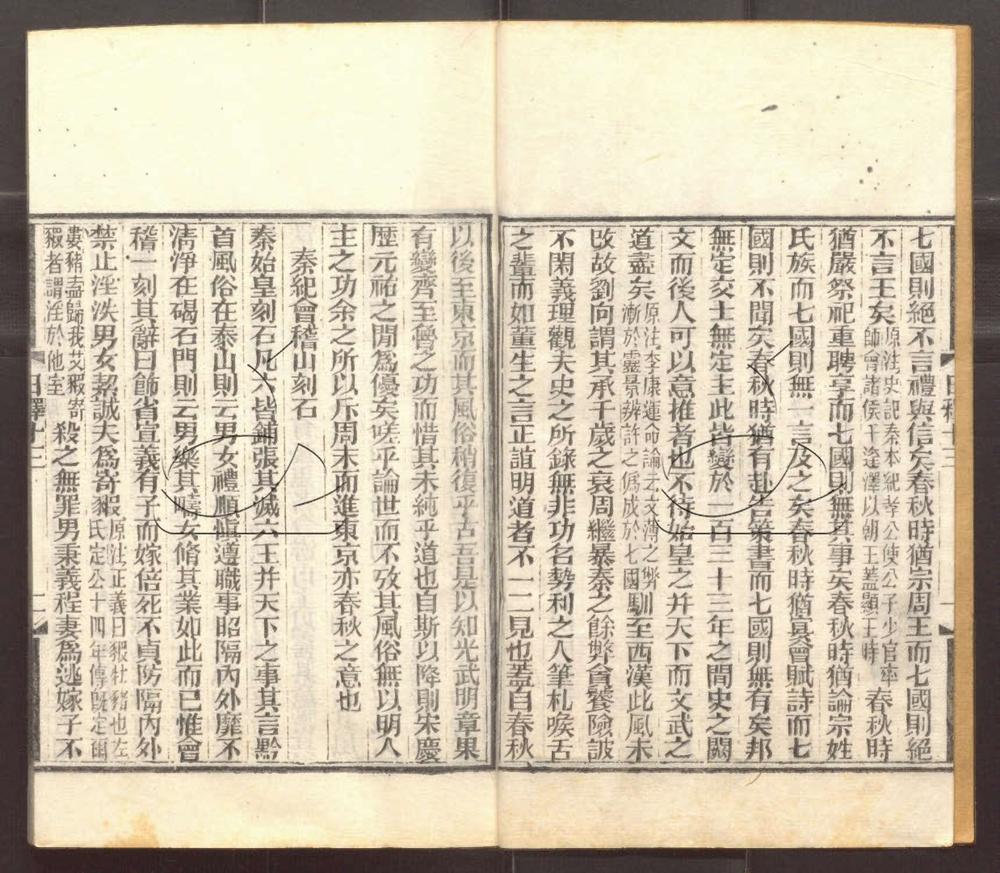 七國則絕不言禮與信矣春秋時猶宗周王而七國則絕
不言王矣原注史記秦本紀孝公使公子少官率師會諸侯于逢澤以朝王蓋顯王時春秋時
猶嚴祭祀重聘享而七國則無其事矣春秋時猶論宗姓
氏族而七國則無一言及之矣春秋時猶宴會賦詩而七
國則不聞矣春秋時猶有赴告策書而七國則無有矣邦
無定交士無定主此皆變於一百三十三年之間史之闕
文而後人可以意推者也不待始皇之并天下而文武之
道盡矣原注李康運命論云文薄之弊漸於靈景辨詐之偽成於七國馴至西漢此風未
改故劉向謂其承千歲之衰周繼暴秦之餘弊貪饕險詖
不閑義理觀夫史之所錄無非功名勢利之人筆札喉舌
之輩而如董生之言正誼明道者不一二見也蓋自春秋
以後至東京而其風俗稍復乎古吾是以知光武明章果
有變齊至魯之功而惜其未純乎道也自斯以降則宋慶
歷元祐之間為優矣嗟乎論世而不攷其風俗無以明人
主之功余之所以斥周末而進東京亦春秋之意也
秦紀會稽山刻石
秦始皇刻石凡六皆鋪張其滅六王并天下之事其言黔
首風俗在泰山則云男女禮順慎遵職事昭隔內外靡不
清淨在碣石門則云男樂其疇女脩其業如此而已惟會
稽一刻其辭曰飾省宣義有子而嫁倍死不貞防隔內外
禁止淫泆男女絜誠夫為寄豭原注正義曰豭牡豬也左氏定公十四年傳既定爾
婁豬盍歸我艾豭寄豭者謂淫於他室殺之無罪男秉義程妻為逃嫁子不
日釋十三